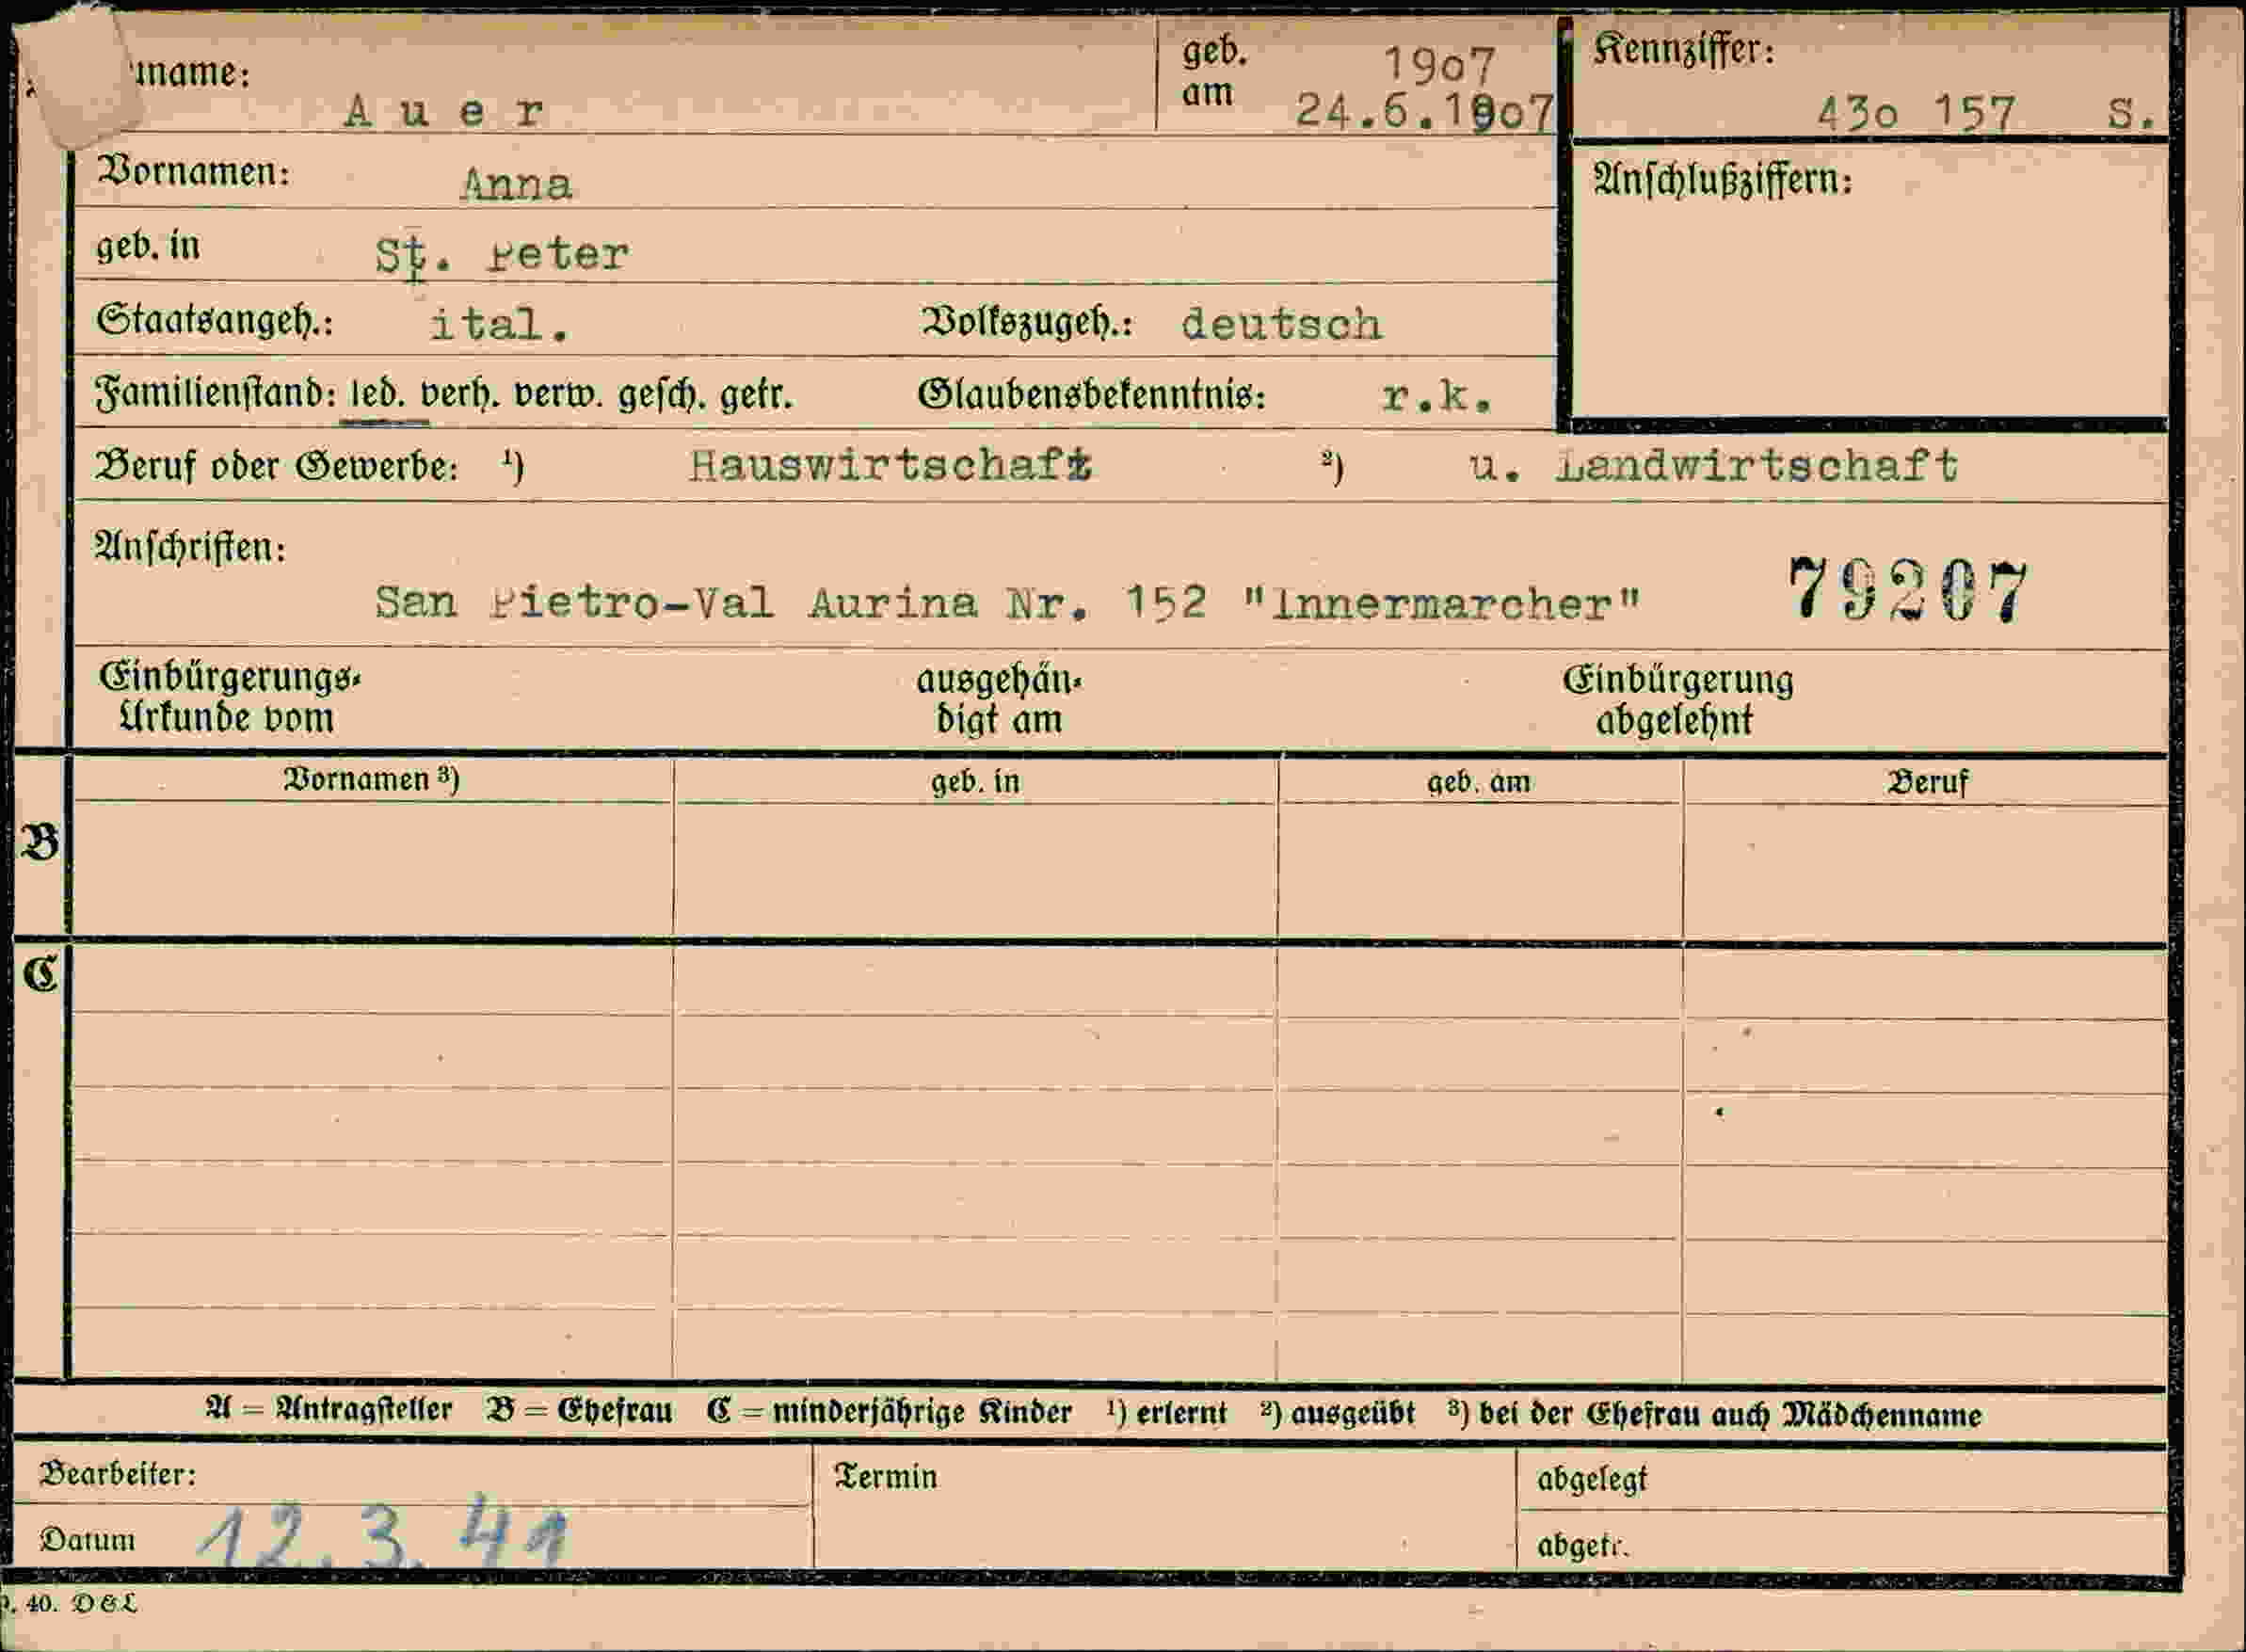 name:
A u e r
geb. am
1907
24.6.1907
Kennziffer:
430 157 S.
Vornamen: Anna
Anschlußziffern:
geb. in St. Peter
Staatsangeh.: ital. Volkszugeh.: deutsch
Familienstand: led. verh. verw. gesch. getr. Glaubensbekenntnis: r.k.
Beruf oder Gewerbe: ¹) Hauswirtschaft ²) u. Landwirtschaft
Anschriften:
San Pietro-Val Aurina Nr. 152 "Innermarcher" 79207
Einbürgerungs-
Urkunde vom
ausgehän-
digt am
Einbürgerung
abgelehnt
Vornamen ³) geb. in geb. am Beruf
B
C
A = Antragsteller B = Ehefrau C = minderjährige Kinder ¹) erlernt ²) ausgeübt ³) bei der Ehefrau auch Mädchenname
Bearbeiter: Termin abgelegt
Datum 12.3.41 abgetr.
40. D & L